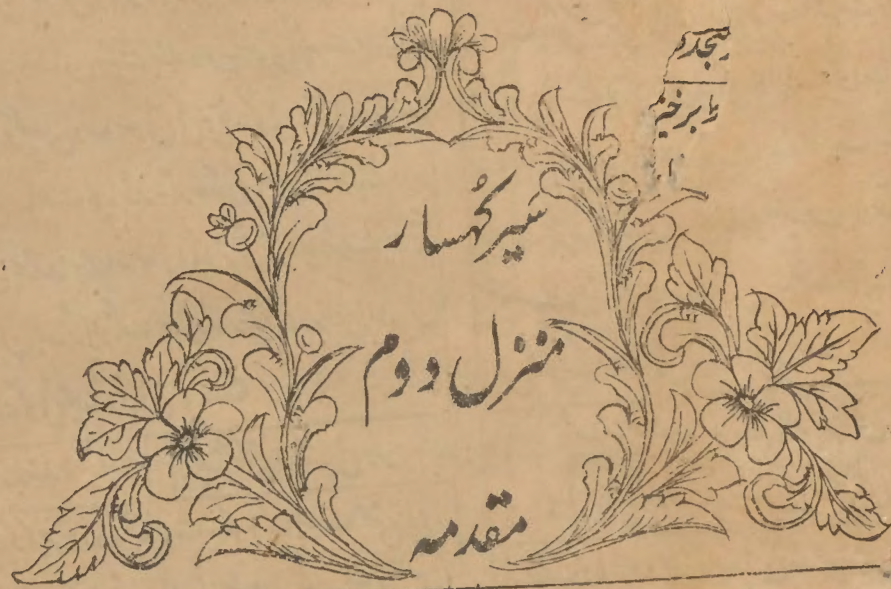 سیر کُہسار
منزل دوم
مقدمہ